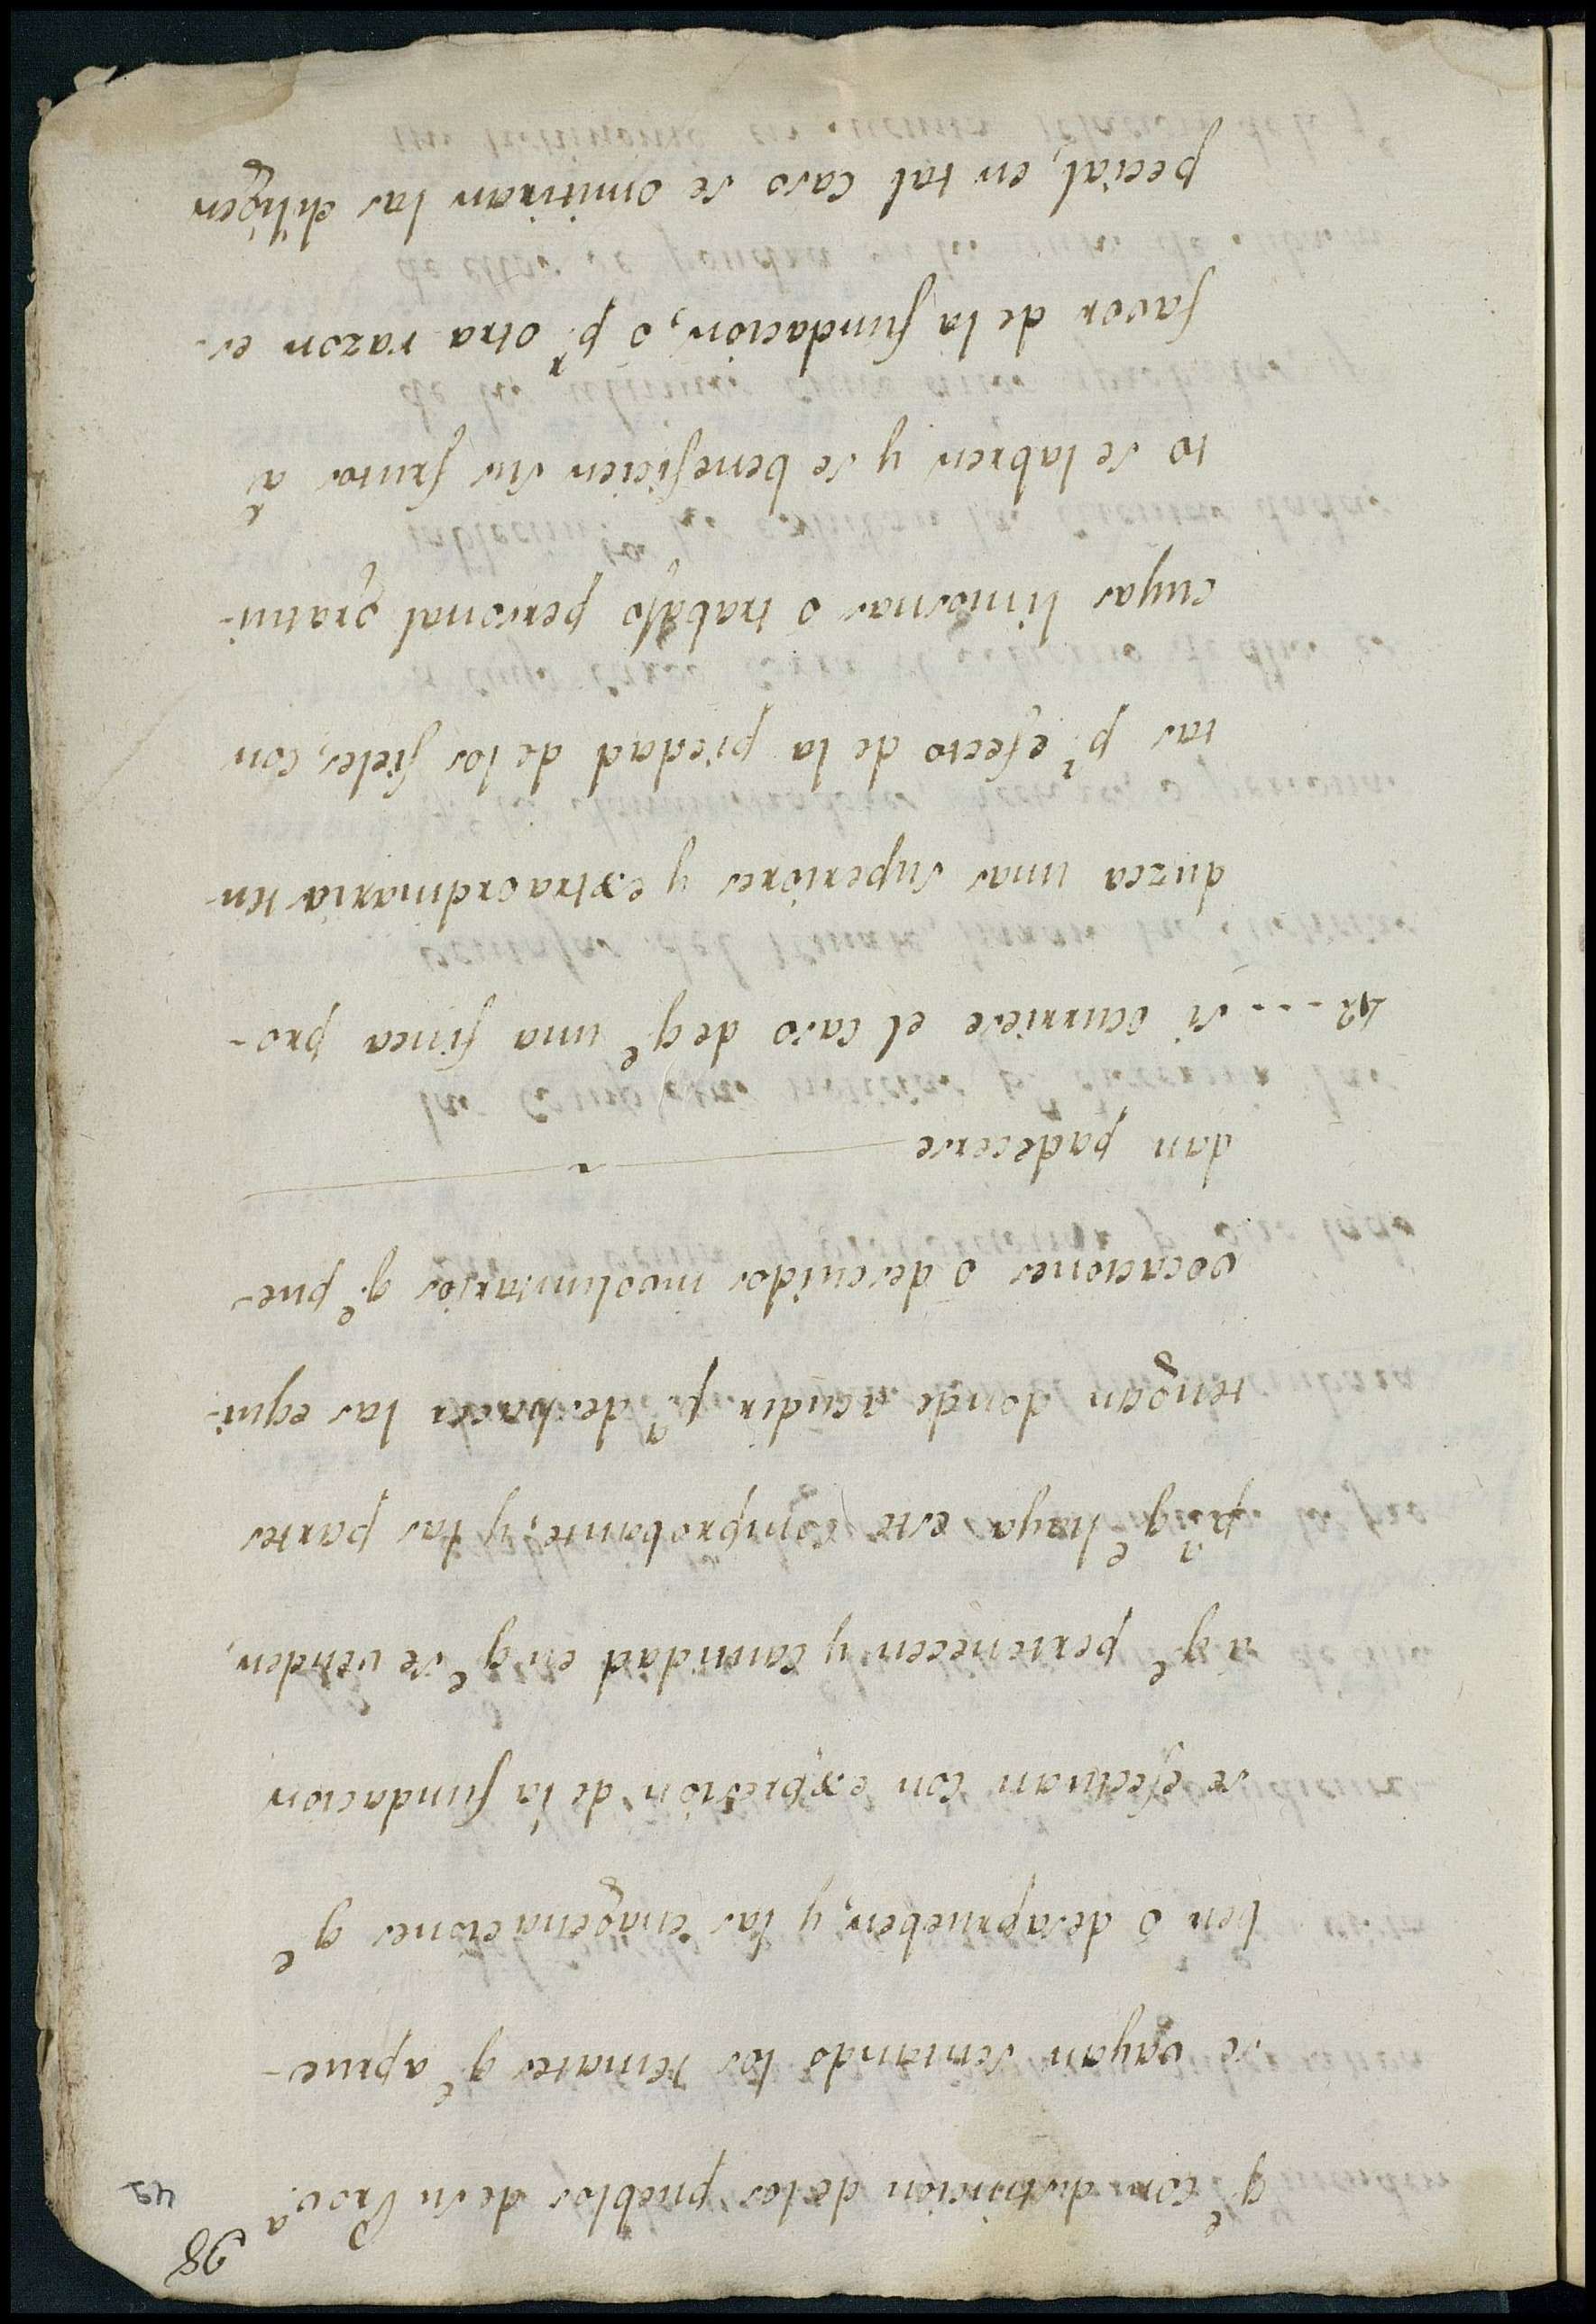 98
42
qᵉ con distincion de los pueblos de su Provᵃ.
se vayan sentando los remates qᵉ aprue-
ben ó desaprueben, y las enagenaciones qᵉ
se efectuan con expresion de la fundacion
a qᵉ pertenecen y cantidad en qᵉ se venden,
pᵃ qᵉ haya este comprobante, y las partes
tengan donde acudir pᵃ deshacer las equi-
vocaciones ó descuidos involuntarios qᵉ pue-
dan padecerse
42... si ocurriese el caso de qᵉ una finca pro-
duzca unas superiores y extraordinarias ren-
tas pʳ efecto de la piedad de los fieles, con
cuyas limosnas ó trabajo personal gratui-
to se labren y se beneficien sus frutos á
favor de la fundacion, ó pʳ otra razon es-
pecial, en tal caso se omitiran las diligen